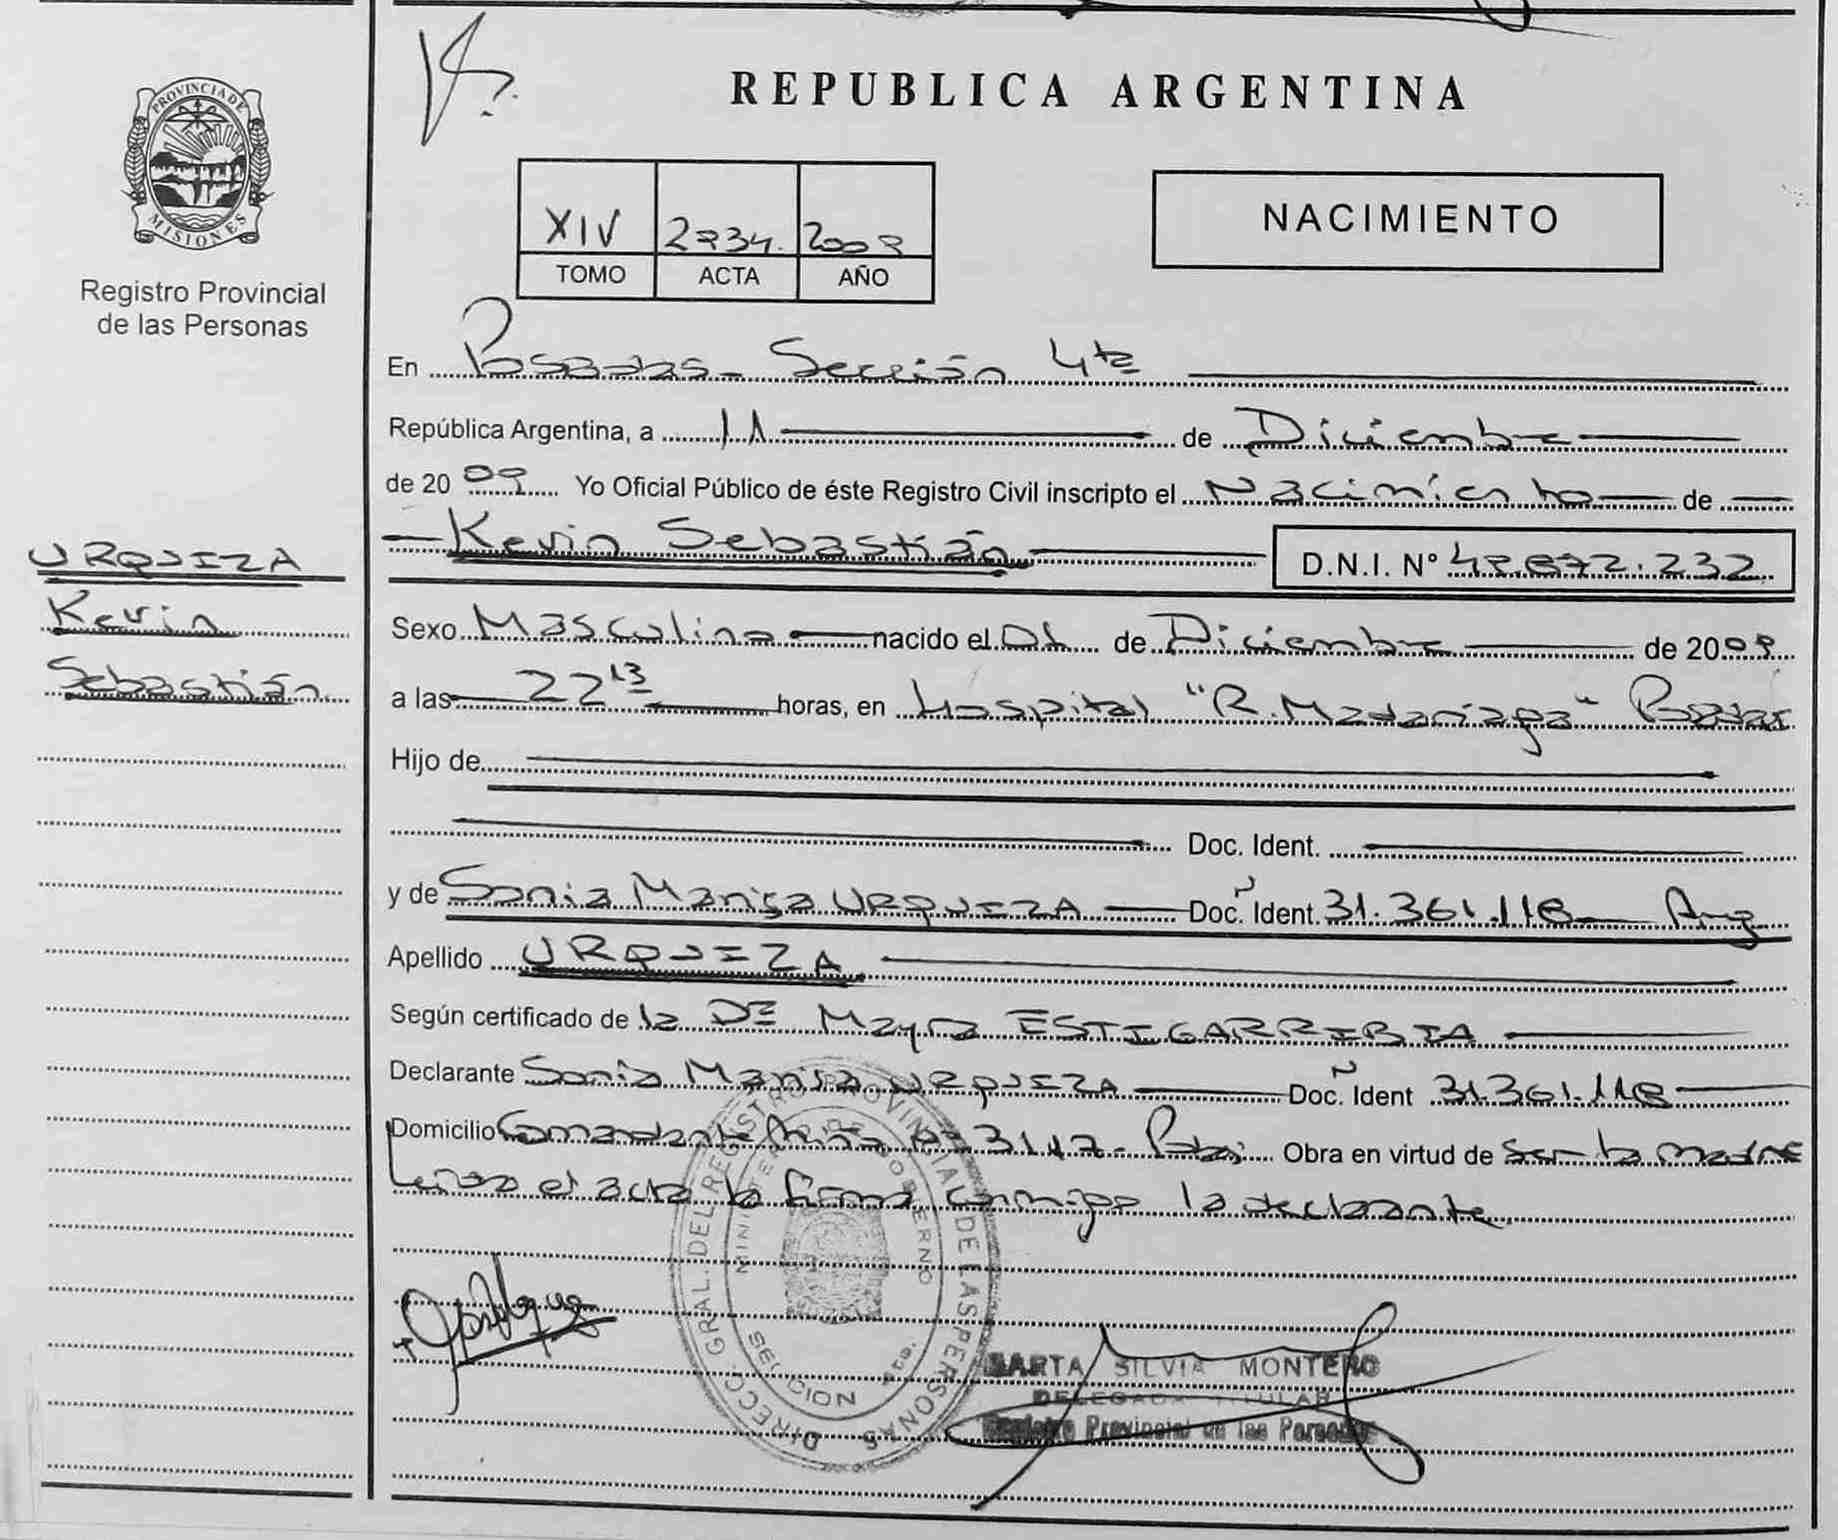 PROVINCIA DE
MISIONES
Registro Provincial
de las Personas
REPUBLICA ARGENTINA
XIV 2834. 2009
TOMO ACTA AÑO
NACIMIENTO
En Posadas - Sección 4ta
República Argentina, a 11 de Diciembre
de 2009 Yo Oficial Público de éste Registro Civil inscripto el Nacimiento de
Kevin Sebastián D.N.I. Nº 49.672.232
URQUIZA
Kevin
Sebastián
Sexo Masculino nacido el 01 de Diciembre de 2009
a las 22 13 horas, en Hospital "R. Madariaga" Posadas
Hijo de
Doc. Ident.
y de Sonia Marisa URQUIZA Doc. Ident. 31.361.118 Arg
Apellido URQUIZA
Según certificado de la Dra Mayra ESTIGARRIBIA
Declarante Sonia Marisa URQUIZA Doc. Ident 31.361.118
Domicilio Comandante 3117 - Pdas; Obra en virtud de ser la madre
Leída el acta la firma conmigo la declarante.
DIRECC. GRAL. DEL REGISTRO PROVINCIAL DE LAS PERSONAS
MINISTERIO DE GOBIERNO
SECCION 4ta.
MARTA SILVIA MONTERO
DELEGADA TITULAR
Registro Provincial de las Personas